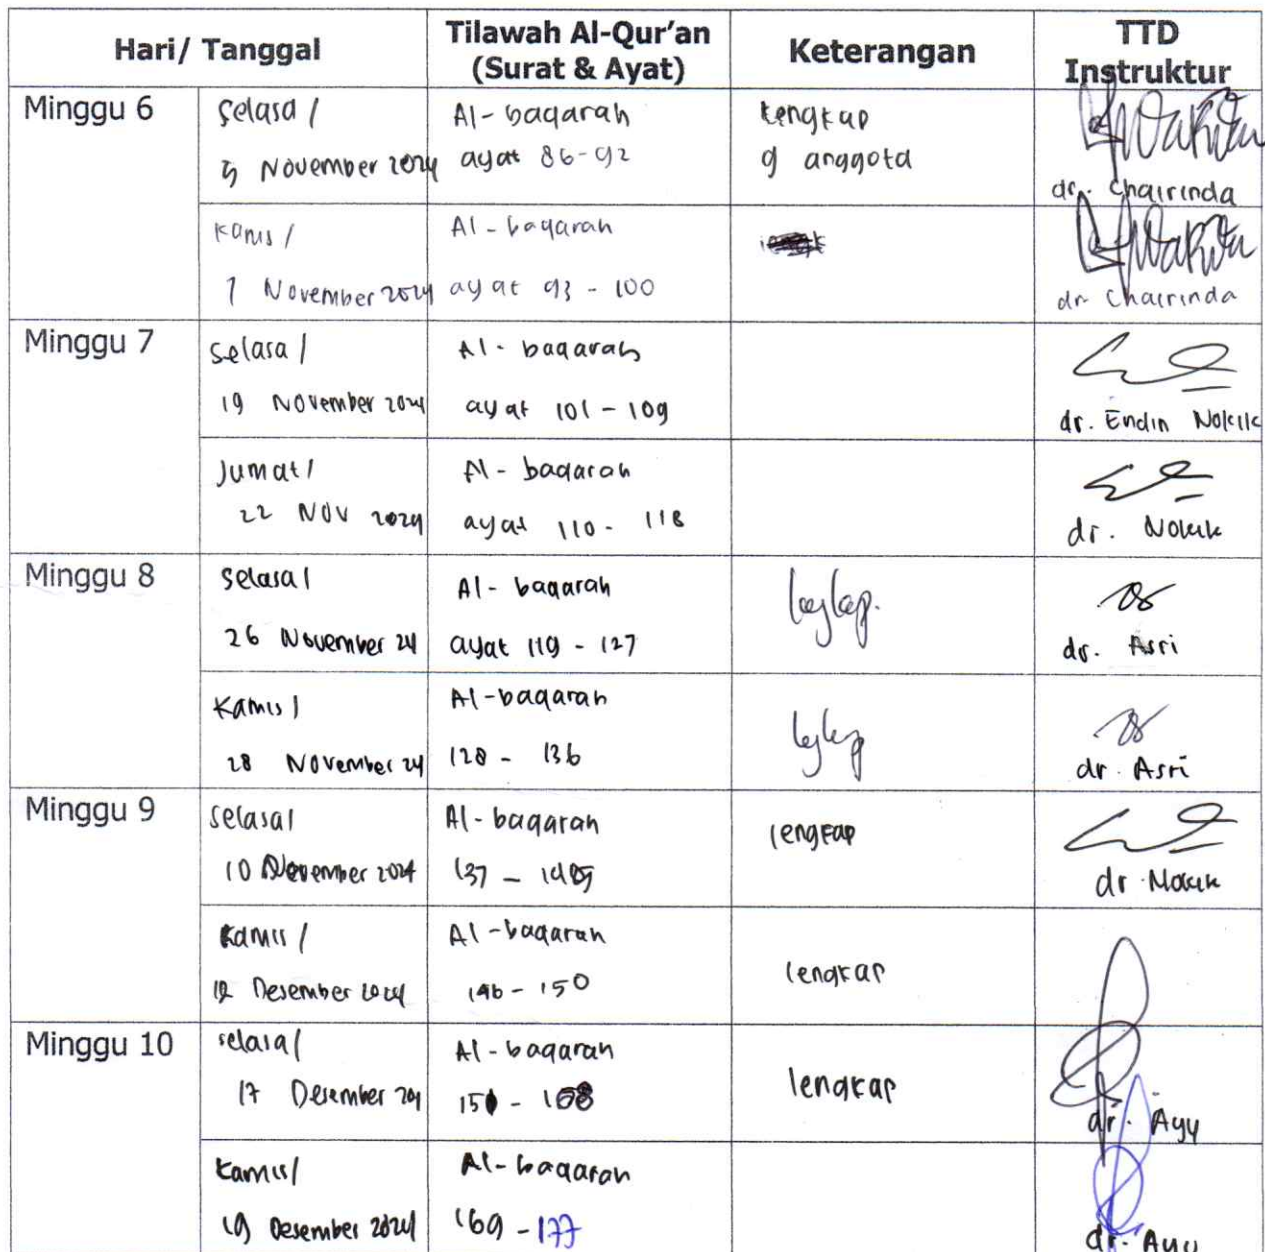 Hari/ Tanggal
Tilawah Al-Qur'an
(Surat & Ayat)
Keterangan
TTD
Instruktur
Minggu 6
Selasa /
5 November 2024
Al-baqarah
ayat 86-92
Lengkap
9 anggota
dr. Chairinda
Kamis /
7 November 2024
Al-baqarah
ayat 93 - 100
dr. Chairinda
Minggu 7
Selasa /
19 November 2024
Al-baqarah
ayat 101 - 109
dr. Endin Nokik
Jumat /
22 Nov 2024
Al-baqarah
ayat 110 - 118
dr. Nokik
Minggu 8
Selasa /
26 November 24
Al-baqarah
ayat 119 - 127
lengkap.
dr. Asri
Kamis /
28 November 24
Al-baqarah
128 - 136
lengkap
dr. Asri
Minggu 9
Selasa /
10 2024
Al-baqarah
137 -
lengkap
dr. Nokik
Kamis /
12 Desember 2024
Al-baqarah
146 - 150
lengkap
Minggu 10
Selasa /
17 Desember 204
Al-baqarah
151 - 168
lengkap
dr. Ayu
Kamis /
19 Desember 2024
Al-baqarah
169 - 177
dr. Ayu